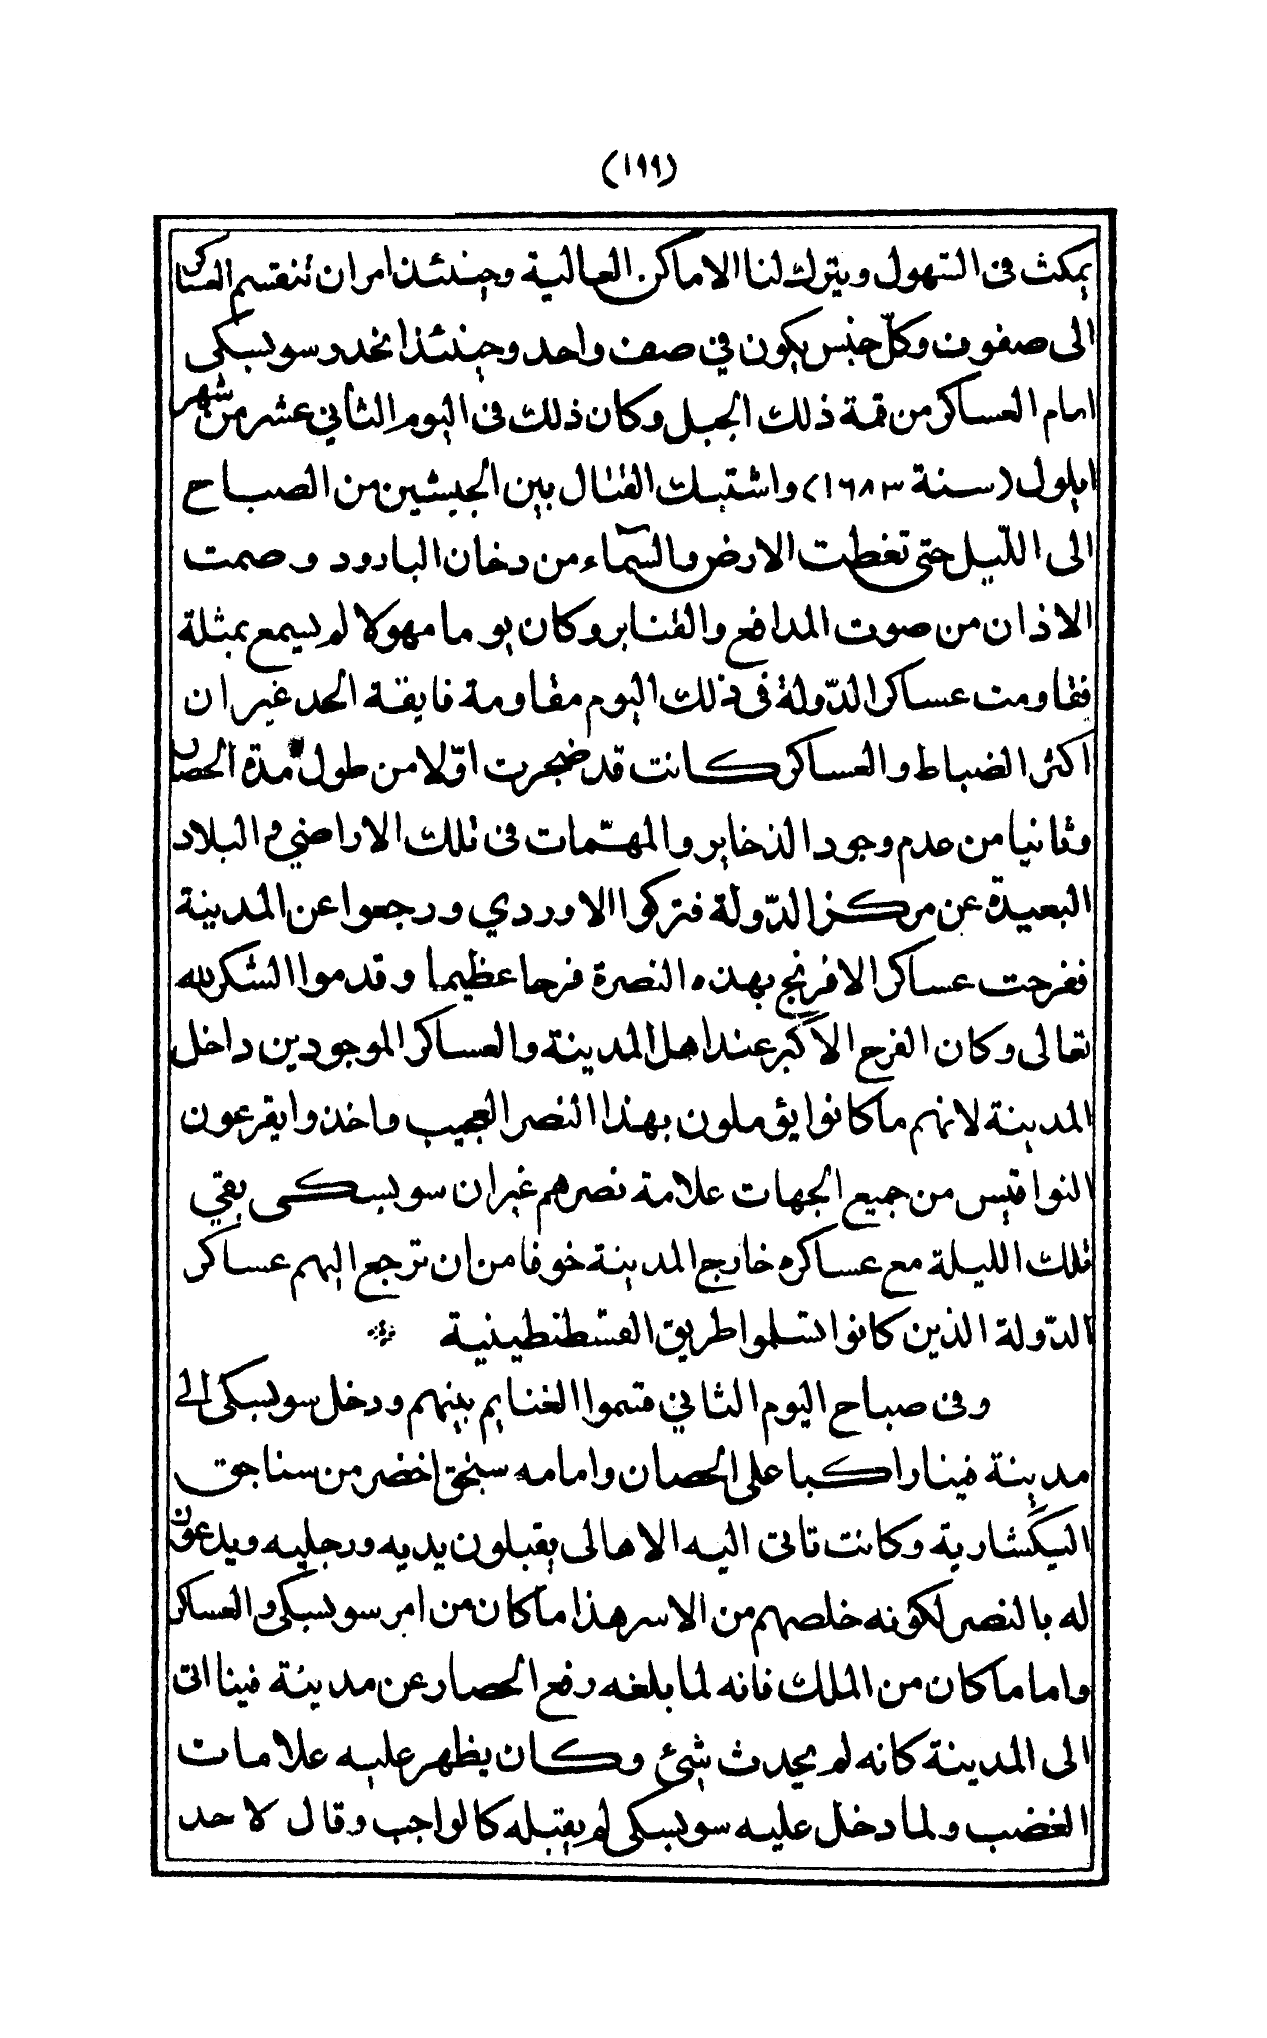 (١٩٩)
يمكث فى السهول ويترك لنا الاماكن العالية وحينئذ امر ان تنقسم العساكر
الى صفوف وكلّ جنس يكون في صف واحد وحينئذ انحدر سوبسكى
امام العساكر من قمة ذلك الجبل وكان ذلك فى اليوم الثاني عشر من شهر
ايلول (سنة ١٦٨٣) واشتبك القتال بين الجيشين من الصباح
الى اللّيل حتى تغطت الارض والسمآء من دخان البارود وصمت
الاذان من صوت المدافع والقنابر وكان يوما مهولا لم يسمع بمثلة
فقاومت عساكر الدّولة في ذلك اليوم مقاومة فايقة الحد غير ان
اكثر الضباط والعساكر كانت قد ضجرت اوّلا من طول مدة الحصار
وثانيا من عدم وجود الذخاير والمهمّات فى تلك الاراضي والبلاد
البعيدة عن مركز الدّولة فتركوا الاوردي ورجعوا عن المدينة
ففرحت عساكر الافرنج بهذه النصرة فرحا عظيما وقدموا الشكر لله
تعالى وكان الفرح الاكبر عند اهل المدينة والعساكر الموجودين داخل
المدينة لانهم ما كانوا يؤملون بهذا النصر العجيب واخذوا يقرعون
النواقيس من جميع الجهات علامة نصرهم غير ان سوبسكى بقي
تلك الليلة مع عساكره خارج المدينة خوفا من ان ترجع اليهم عساكر
الدّولة الذين كانوا استلموا طريق القسطنطينية
وفى صباح اليوم الثاني قسموا الغنايم بينهم ودخل سوبسكى الى
مدينة فينا راكبا على الحصان وامامه سنجق اخضر من سناجق
اليكشارية وكانت تاتى اليه الاهالى يقبلون يديه ورجليه ويدعون
له بالنصر لكونه خلصهم من الاسر هذا ما كان من امر سوبسكى والعساكر
واما ما كان من الملك فانه لما بلغه رفع الحصار عن مدينة فينا اتى
الى المدينة كانه لم يحدث شئ وكان يظهر عليه علامات
الغضب ولما دخل عليه سوبسكى لم يقبله كالواجب وقال لاحد